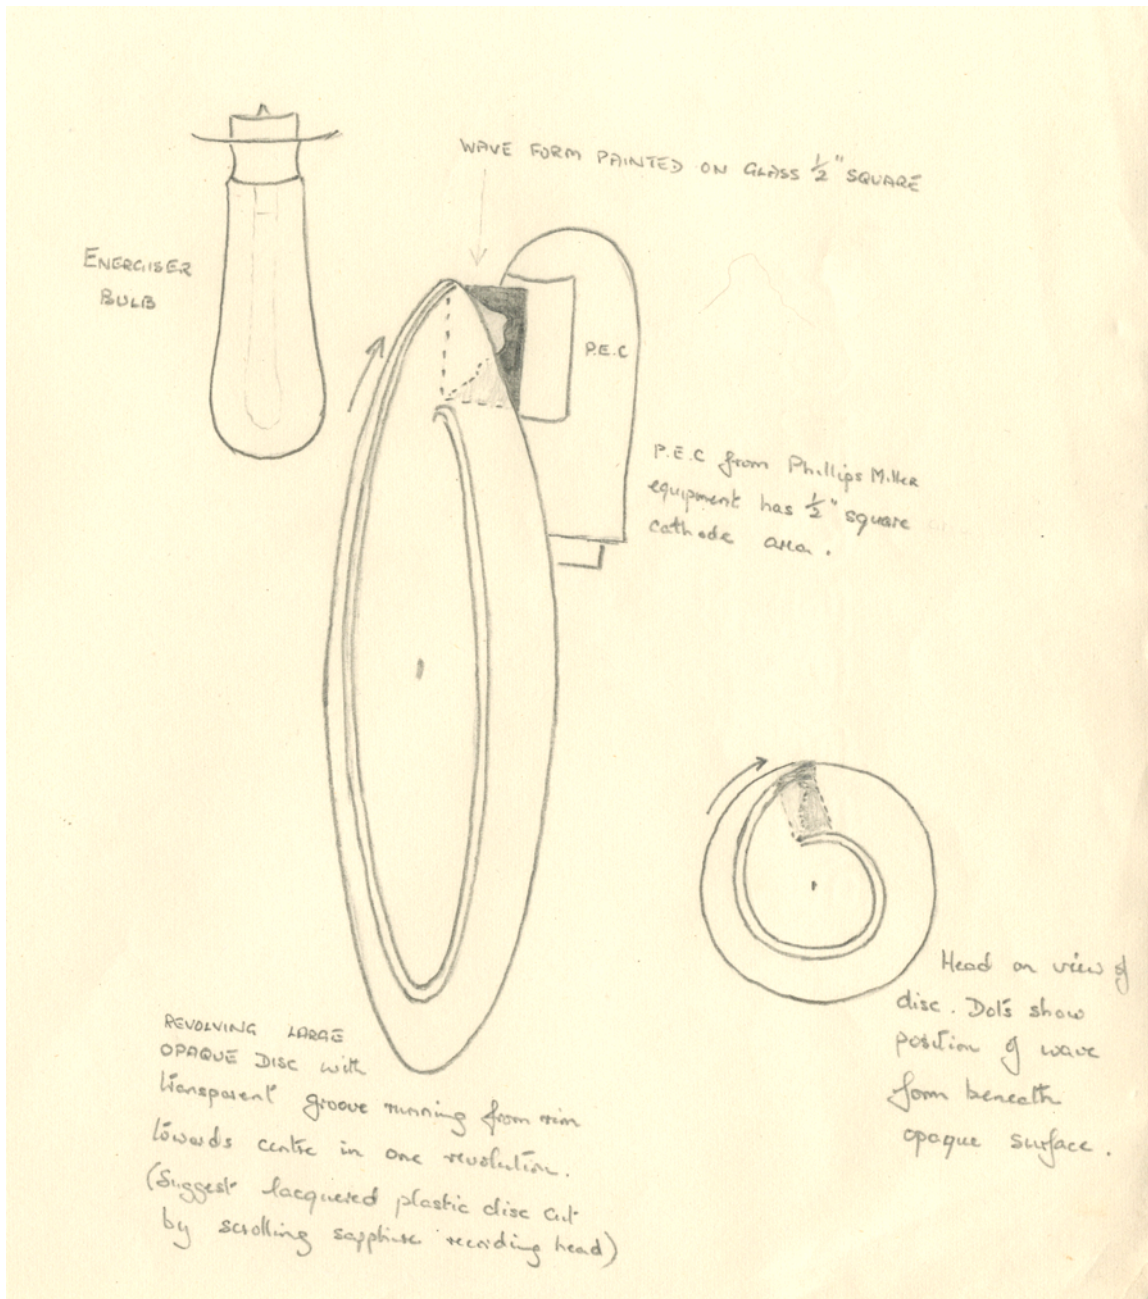 WAVE FORM PAINTED ON GLASS 1/2" SQUARE
ENERGISER
BULB
P.E.C
P.E.C from Phillips Miller
equipment has 1/2" square
cathode area.
Head on view of
disc. Dots show
position of wave
form beneath
opaque surface.
REVOLVING LARGE
OPAQUE DISC with
transparent groove running from rim
towards centre in one revolution.
(Suggest lacquered plastic disc cut
by scrolling sapphire recording head)